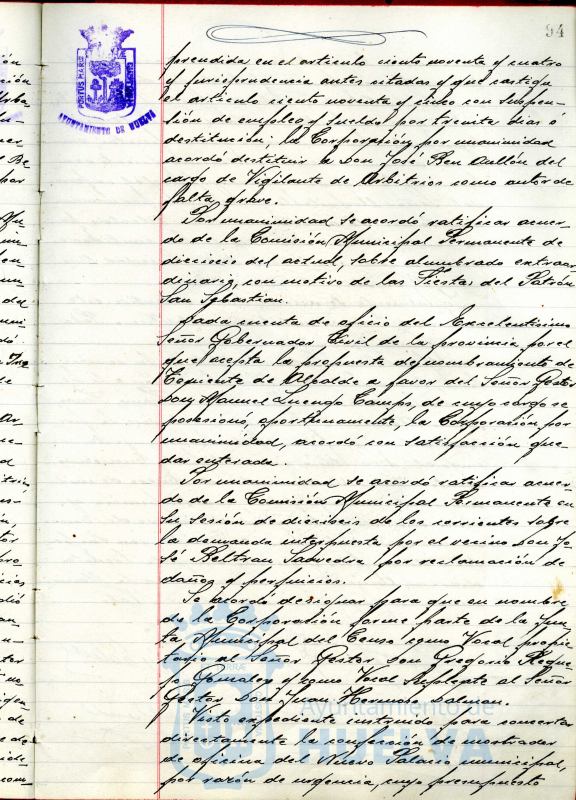 94
PORTUS MARIS ET TERRAE CUSTODIA
AYUNTAMIENTO DE HUELVA
prendida en el articulo ciento noventa y cuatro
y jurisprudencia antes citadas y que castiga
el articulo ciento noventa y cinco con suspen-
sión de empleo y sueldo por treinta dias ó
destitución; la Corporación por unanimidad
acordó destituir a Don José Ben Aullón del
cargo de Vigilante de Arbitrios como autor de
falta grave.
Por unanimidad se acordó ratificar acuer-
do de la Comisión Municipal Permanente de
dieciocio del actual, sobre alumbrado extraor
dinario, con motivo de las Fiestas del Patrón
San Sebastian.
Dada cuenta de oficio del Excelentisimo
Señor Gobernador Civil de la provincia por el
que acepta la propuesta de nombramiento de
Teniente de Alcalde a favor del Señor Gestor
Don Manuel Luengo Camps, de cuyo cargo se
posesionó, oportunamente, la Corporación por
unanimidad, acordó con satisfacción que-
dar enterada.
Por unanimidad se acordó ratificar acuer-
do de la Comisión Municipal Permanente en
su sesión de dieciocis de los corrientes sobre
la demanda interpuesta por el vecino Don Jo-
sé Beltran Saavedra por reclamación de
daños y perjuicios.
Se acordó designar para que en nombre
de la Corporación forme parte de la Jun-
ta Municipal del Censo como Vocal propie-
tario al Señor Gestor Don Gregorio Reque-
jo Gonzalez y como Vocal Suplente al Señor
Gestor Don Juan Hermoso
Visto expediente instruido para concertar
directamente la confección de mostrador
de oficina del Nuevo Palacio municipal,
por razón de urgencia, cuyo presupuesto
Ayuntamiento de
HUELVA